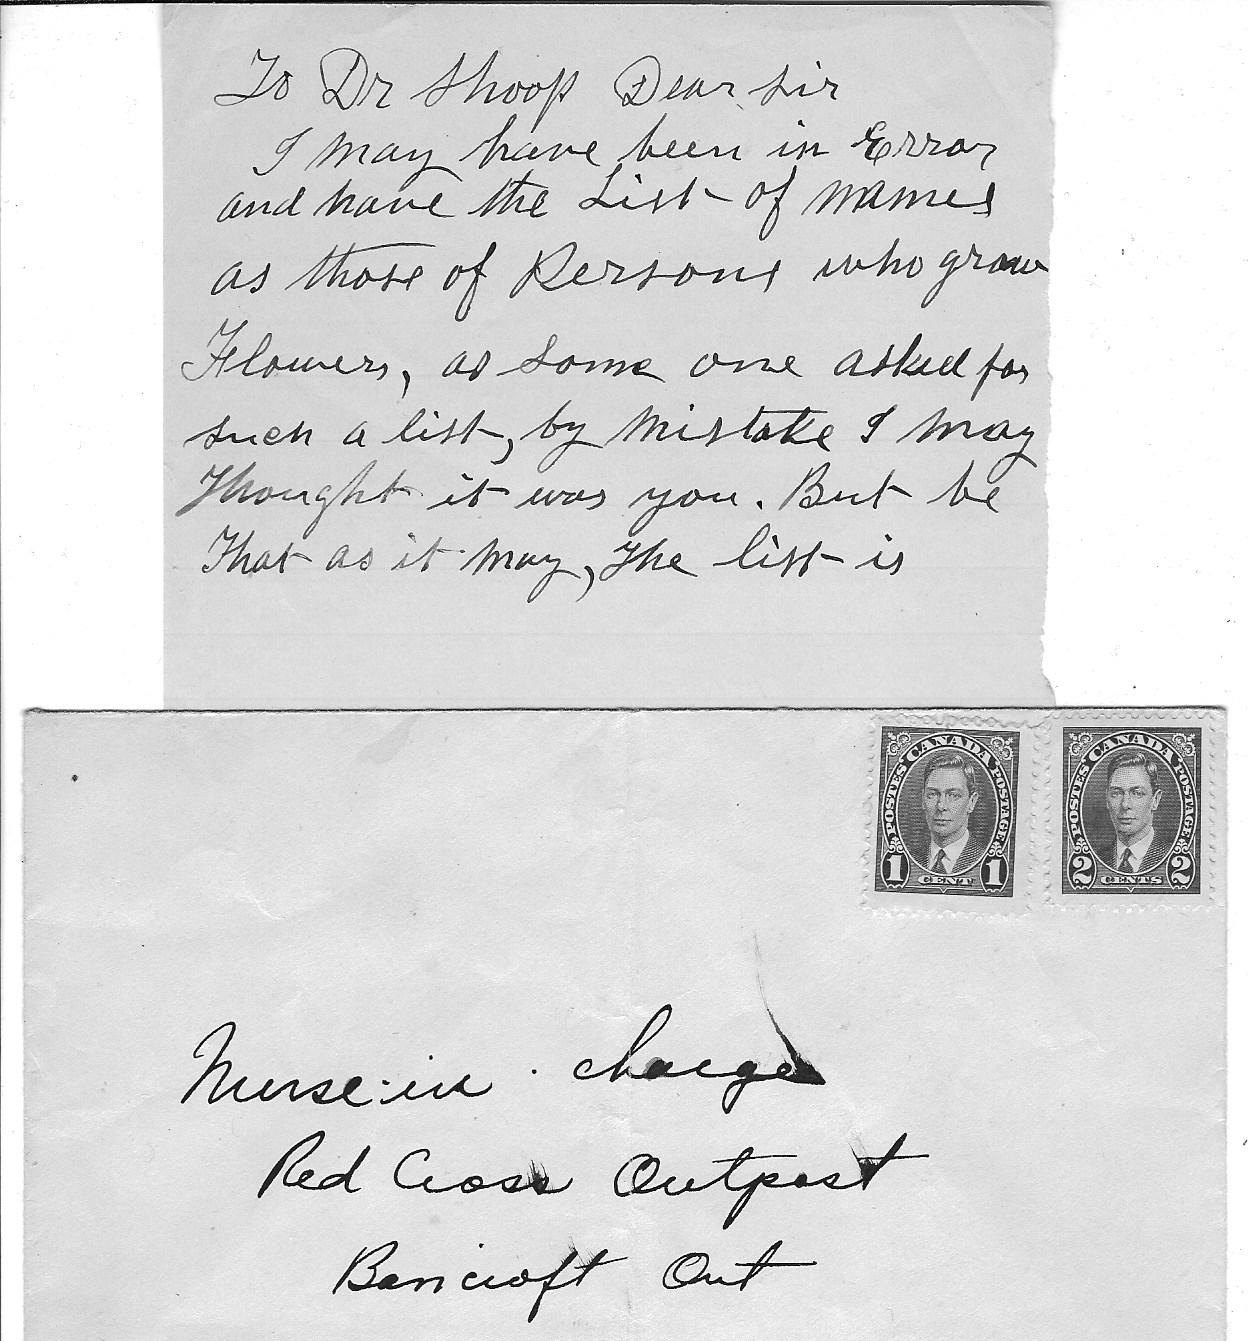 To Dr Shoop Dear Sir
I may have been in Error
and have the List of names
as those of Persons who grow
Flowers, as some one asked for
such a list, by Mistake I may
Thought it was you. But be
That as it may, The list is
POSTES CANADA POSTAGE
1 CENT 1
POSTES CANADA POSTAGE
2 CENTS 2
Nurse-in-charge
Red Cross Outpost
Bancroft Ont